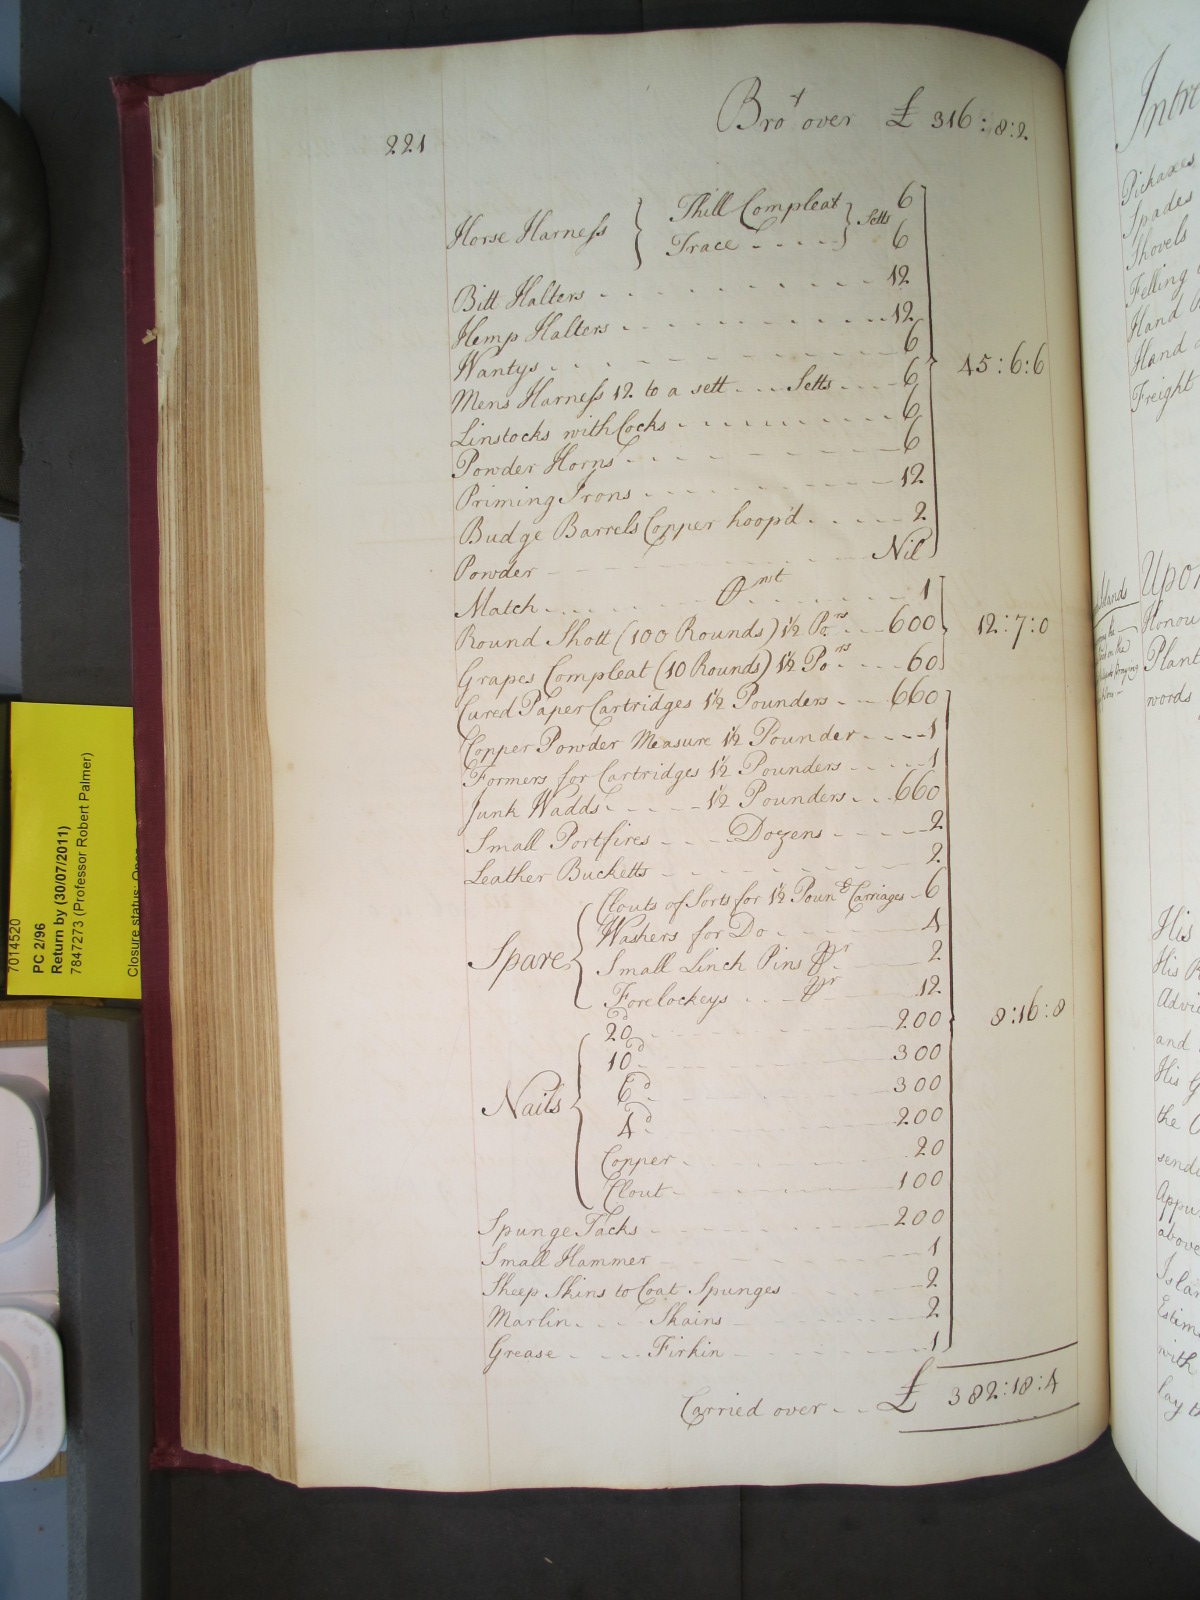 221
Bro.t over £ 316:8:2
Horse Harness { Thill Compleat } Setts 6
Trace - - - - } 6
Bitt Halters - - - - 12
Hemp Halters - - - - 12
Wantys - - - - 6
Mens Harness 12 to a sett - - - Setts - - - 6
Linstocks with Cocks - - - - 6
Powder Horns - - - - 6
Priming Irons - - - - 12
Budge Barrels Copper hoop'd - - - - 2
Powder - - - - Nil
45:6:6
Match - - - - Cwt - - - - 1
Round Shott (100 Rounds) 1½ Po.rs - - - 600
Grapes Compleat (10 Rounds) 1½ Po.rs - - - 60
12:7:0
Cured Paper Cartridges 1½ Pounders - - - 660
Copper Powder Measure 1½ Pounder - - - - 1
Formers for Cartridges 1½ Pounders - - - - 1
Junk Wadds - - - - 1½ Pounders - - - 660
Small Portfires - - - Dozens - - - - 2
Leather Bucketts - - - - 2
Spare { Clouts of Sorts for 1½ Poun.r Carriages - 6
Washers for Do - - - - 4
Small Linch Pins Pr - - - 2
Forelockeys - - - Pr - - - 12
Nails { 20d - - - - 200
10d - - - - 300
6d - - - - 300
4d - - - - 200
Copper - - - - 20
Clout - - - - 100
Spunge Tacks - - - - 200
Small Hammer - - - - 1
Sheep Skins to Coat Spunges - - - 2
Marlin - - - Skains - - - - 2
Grease - - - - Firkin - - - - 1
8:16:8
Carried over - - £ 382:18:4
7014520
PC 2/96
Return by (30/07/2011)
7847273 (Professor Robert Palmer)
Closure status: Open
Intro
Pickaxes
Spades
Shovels
Felling
Hand
Hand
Freight
Upon
Honou
Plant
words
His
His
Advi
and
His
the
sendi
Appu
above
Islan
Estim
with
lay th